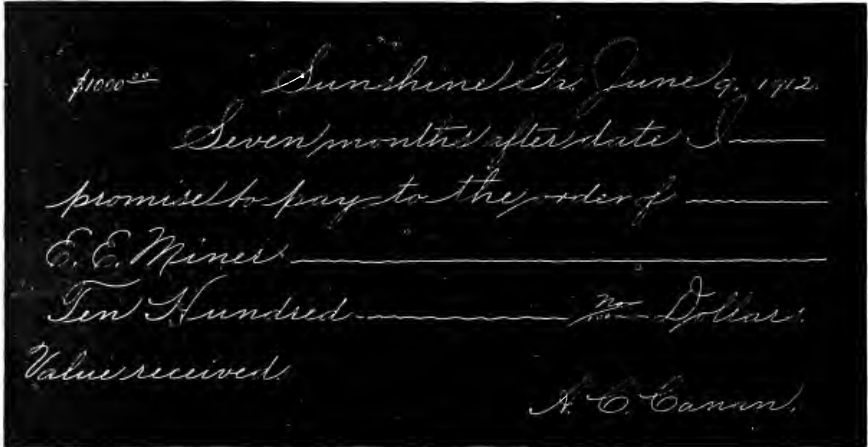 $1000.00 Sunshine Gr. June 9, 1912.
Seven months after date I
promise to pay to the order of
E. E. Miner
Ten Hundred no/100 Dollars.
Value received
A. C. Canan.